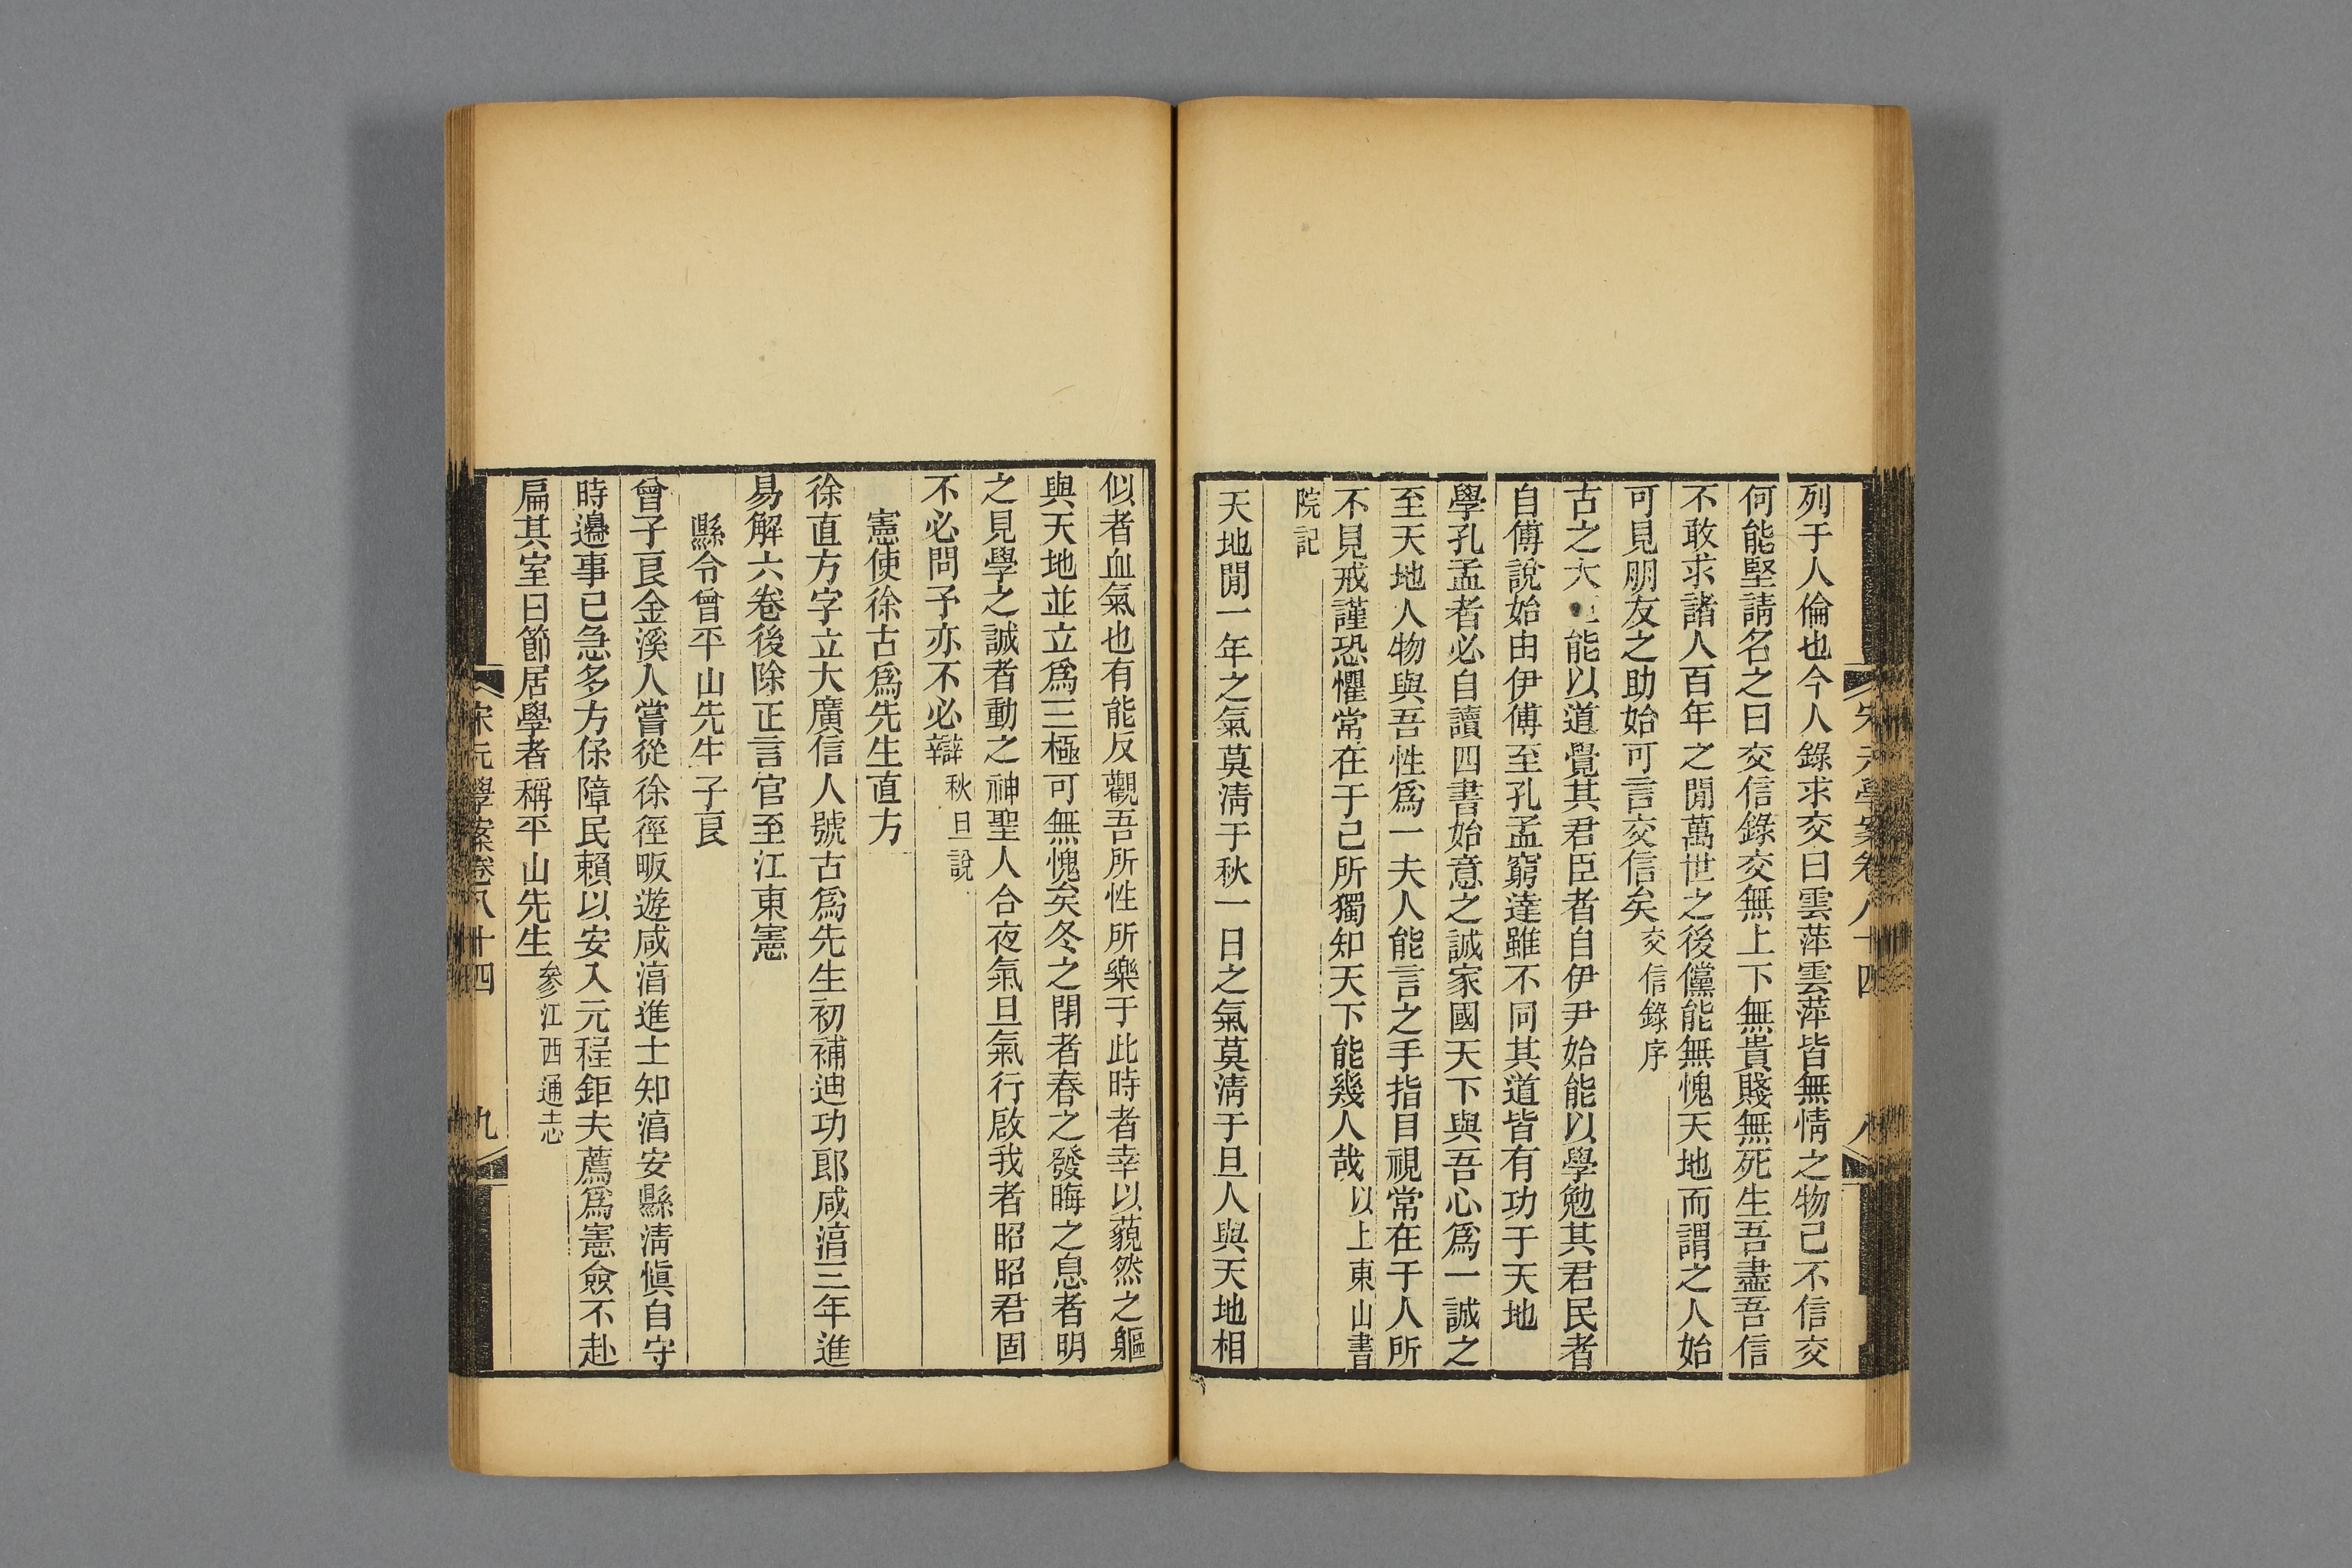 列于人倫也今人錄求交曰雲萍雲萍皆無情之物己不信交
何能堅請名之曰交信錄交無上下無貴賤無死生吾盡吾信
不敢求諸人百年之閒萬世之後儻能無愧天地而謂之人始
可見朋友之助始可言交信矣交信錄序
古之大能以道覺其君臣者自伊尹始能以學勉其君民者
自傅說始由伊傅至孔孟窮達雖不同其道皆有功于天地
學孔孟者必自讀四書始意之誠家國天下與吾心爲一誠之
至天地人物與吾性爲一夫人能言之手指目視常在于人所
不見戒謹恐懼常在于己所獨知天下能幾人哉以上東山書
院記
天地閒一年之氣莫淸于秋一日之氣莫淸于旦人與天地相
宋元學案卷八十四
八
似者血氣也有能反觀吾所性所樂于此時者幸以藐然之軀
與天地並立爲三極可無愧矣冬之閉者春之發晦之息者明
之見學之誠者動之神聖人合夜氣旦氣行啟我者昭昭君固
不必問予亦不必辯秋旦說
憲使徐古爲先生直方
徐直方字立大廣信人號古爲先生初補迪功郎咸淳三年進
易解六卷後除正言官至江東憲
縣令曾平山先生子良
曾子良金溪人嘗從徐徑畈遊咸淳進士知淳安縣淸愼自守
時邊事已急多方保障民賴以安入元程鉅夫薦爲憲僉不赴
扁其室曰節居學者稱平山先生參江西通志
宋元學案卷八十四
九